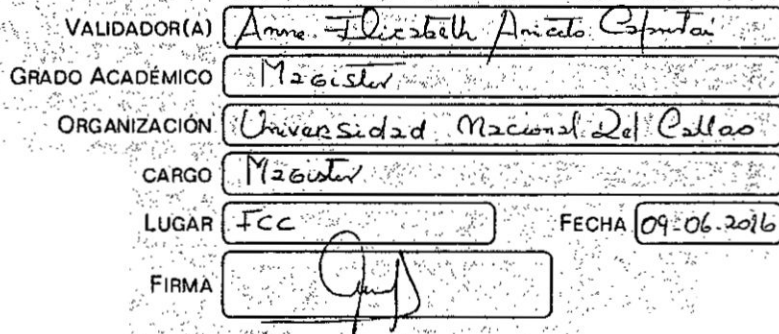 VALIDADOR(A) Anne Elizabeth Aniceto Capristán
GRADO ACADÉMICO Magister
ORGANIZACIÓN Universidad Nacional Del Callao
CARGO Magister
LUGAR FCC FECHA 09-06-2016
FIRMA